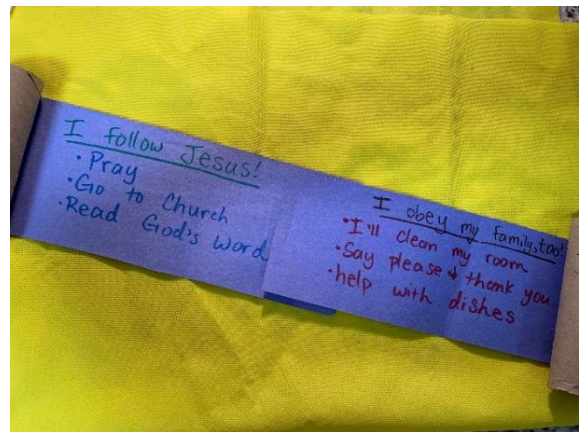 I follow Jesus!
• Pray
• Go to Church
• Read God's word
I obey my family, too!
• I'll clean my room
• Say please & thank you
• help with dishes